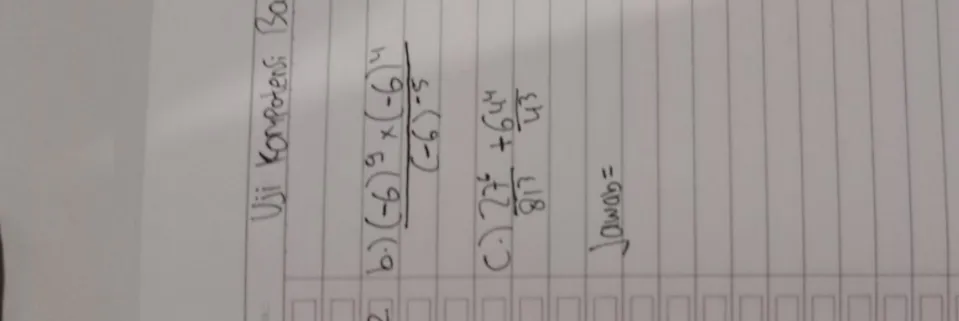 Uji Kompetensi Ba
b.) (-6)⁹ × (-6)⁴
(-6)⁻⁵
c.) 27⁶ + 64⁴
81³ 4³
Jawab=